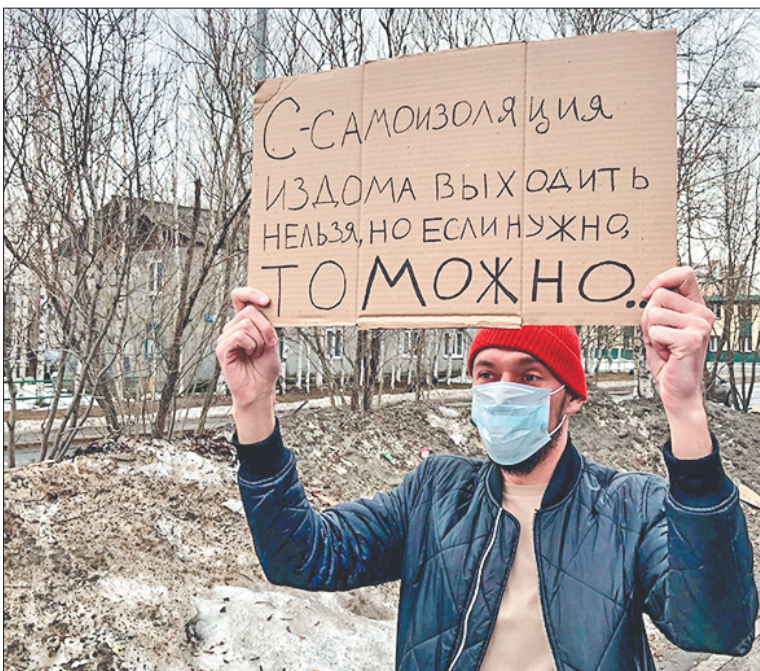 С-САМОИЗОЛЯЦИЯ
ИЗДОМА ВЫХОДИТЬ
НЕЛЬЗЯ, НО ЕСЛИ НУЖНО,
ТО МОЖНО..